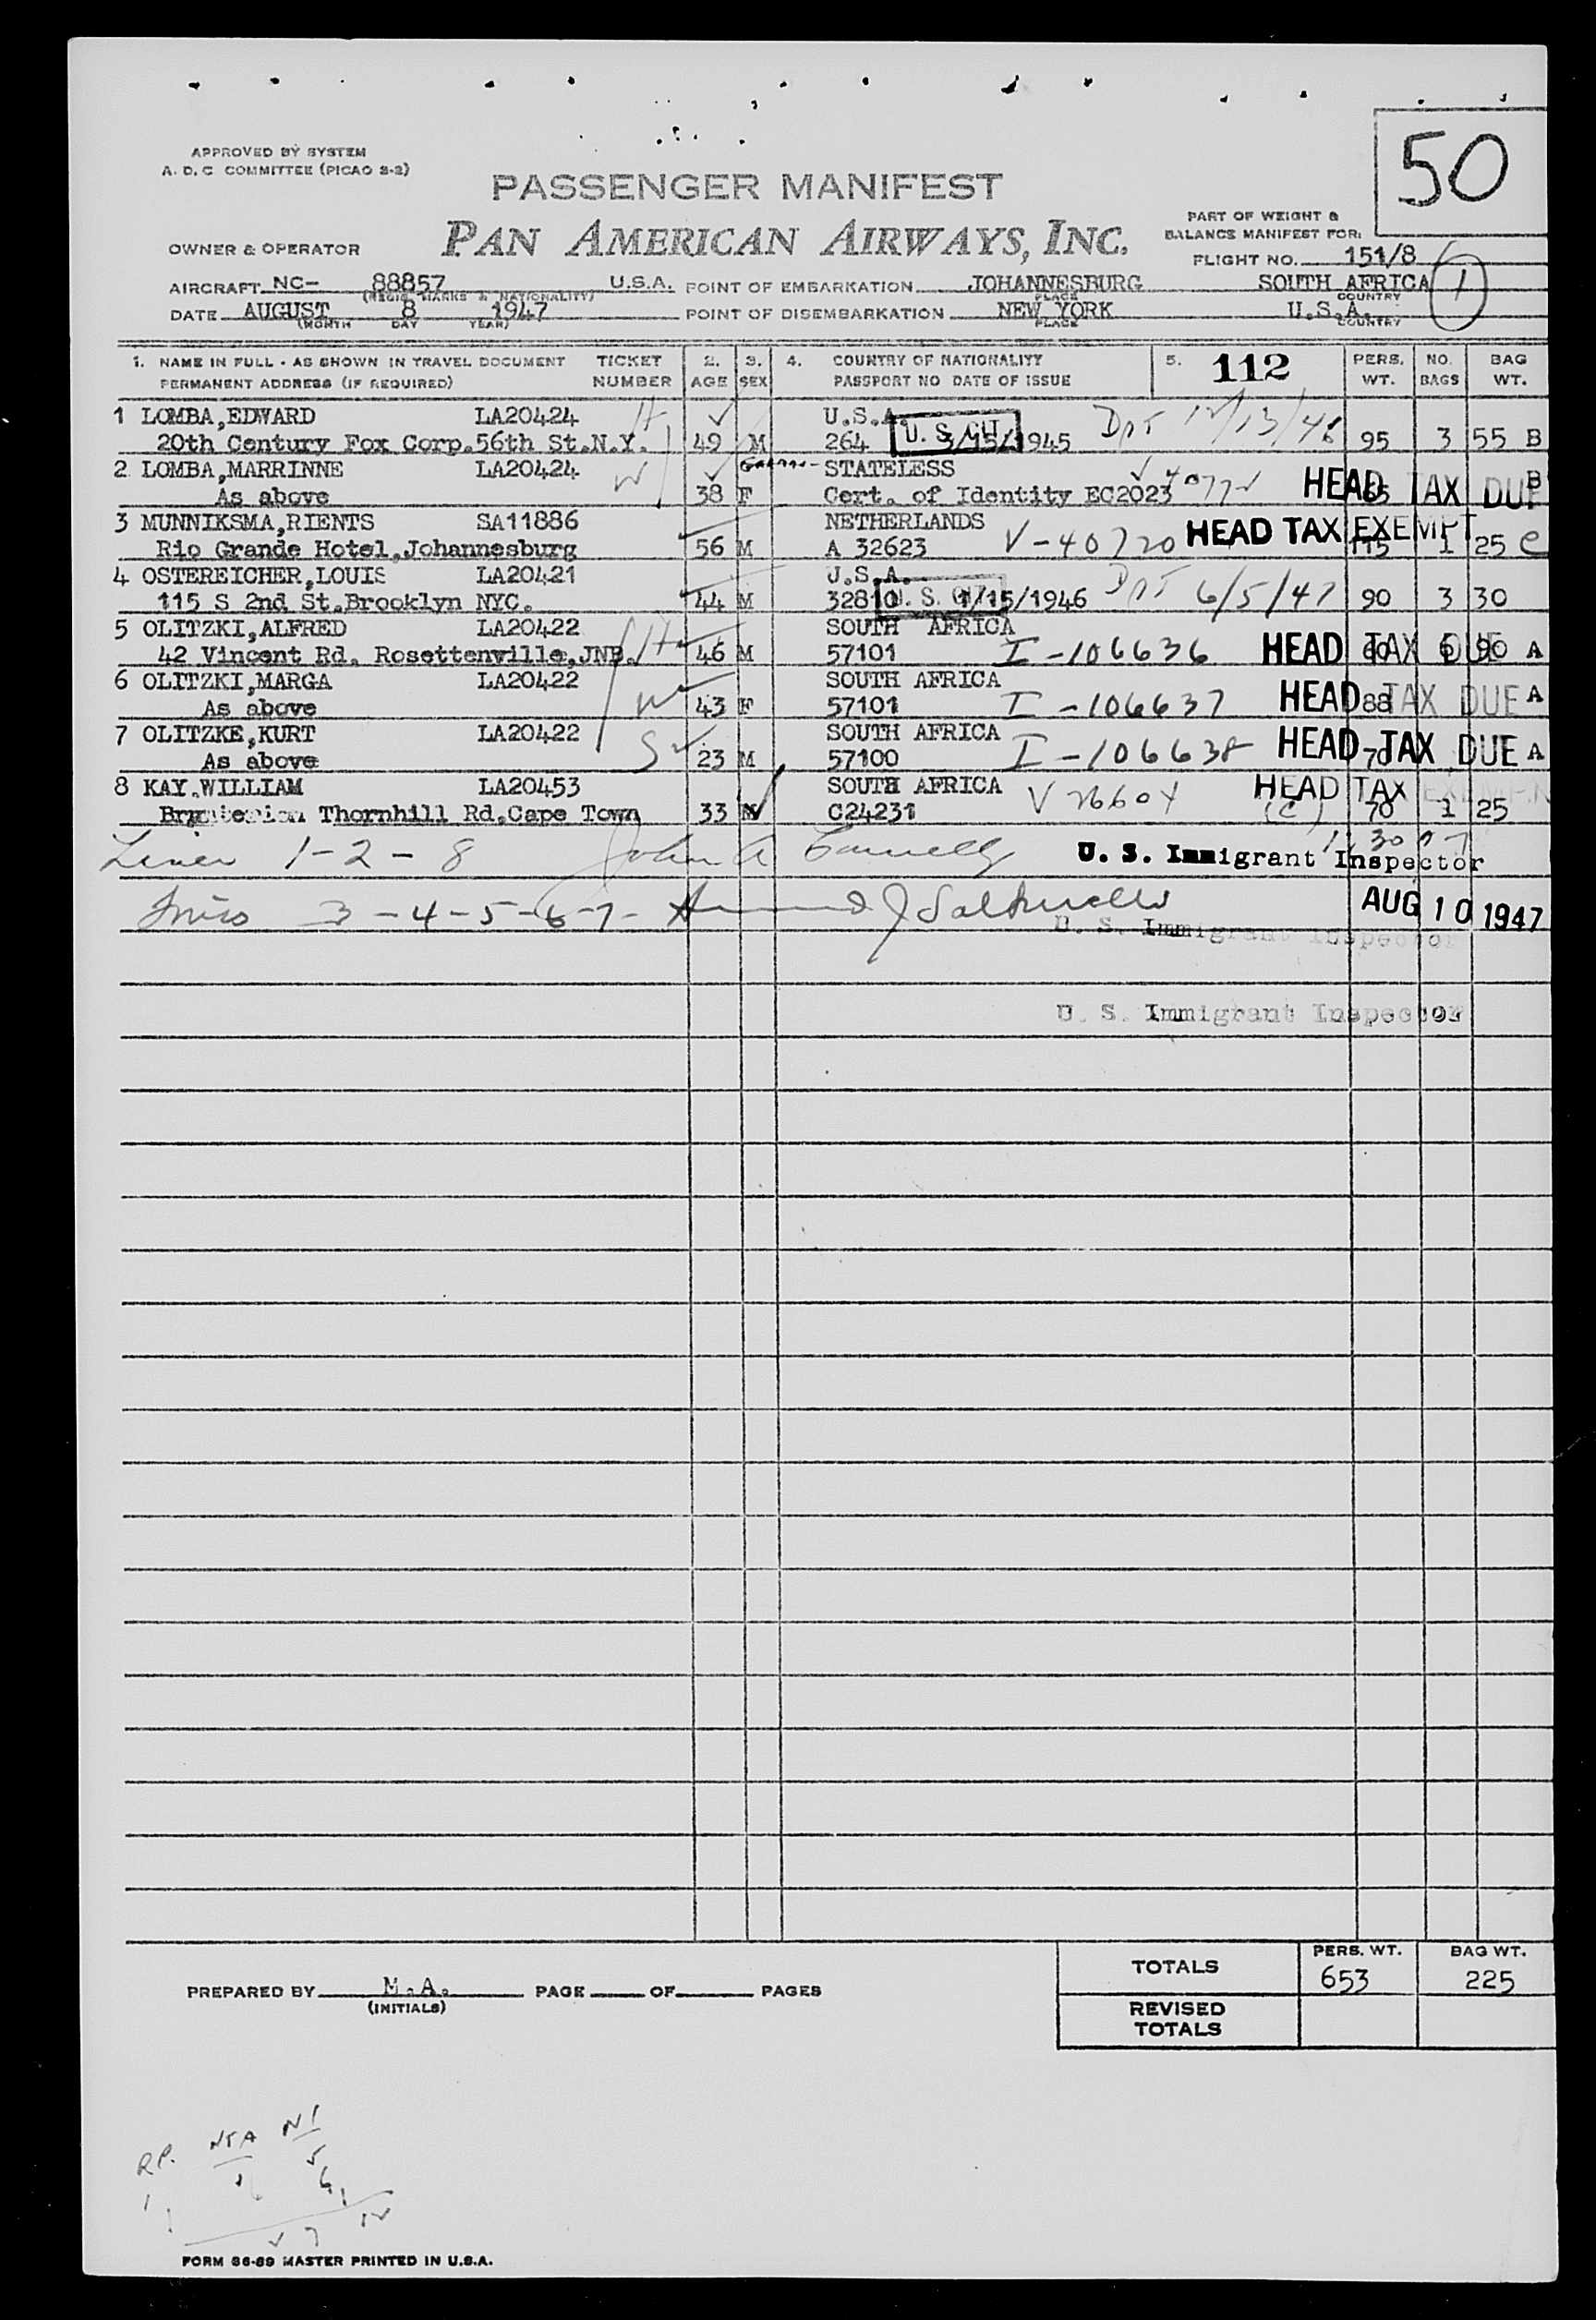 50
APPROVED BY SYSTEM
A. D. C COMMITTEE (PICAO 2-2)
PASSENGER MANIFEST
PAN AMERICAN AIRWAYS, INC.
PART OF WEIGHT &
BALANCE MANIFEST FOR:
OWNER & OPERATOR
FLIGHT NO. 151/8
AIRCRAFT NC- 88857 U.S.A. POINT OF EMBARKATION JOHANNESBURG SOUTH AFRICA 1
(REGIS. MARKS & NATIONALITY) PLACE COUNTRY
DATE AUGUST 8 1947 POINT OF DISEMBARKATION NEW YORK U.S.A.
(MONTH DAY YEAR) PLACE COUNTRY
1. NAME IN FULL - AS SHOWN IN TRAVEL DOCUMENT TICKET 2. 3. 4. COUNTRY OF NATIONALITY 5. 112 PERS. NO. BAG
PERMANENT ADDRESS (IF REQUIRED) NUMBER AGE SEX PASSPORT NO DATE OF ISSUE WT. BAGS WT.
1 LOMBA,EDWARD LA20424 H U.S.A. U. S. CIT. Dpt 12/13/46
20th Century Fox Corp.56th St.N.Y. 49 M 264 3/15/1945 95 3 55 B
2 LOMBA,MARRINNE LA20424 W STATELESS HEAD TAX DUE B
As above 38 F Cert. of Identity EC2023 65
3 MUNNIKSMA,RIENTS SA11886 NETHERLANDS HEAD TAX EXEMPT
Rio Grande Hotel,Johannesburg 56 M A 32623 V-40720 115 1 25 C
4 OSTEREICHER,LOUIS LA20421 U.S.A. U. S. CIT. Dpt 6/5/47
115 S 2nd St.Brooklyn NYC. 44 M 32810 1/15/1946 90 3 30
5 OLITZKI,ALFRED LA20422 H SOUTH AFRICA
42 Vincent Rd. Rosettenville,JNB. 46 M 57101 I-106636 HEAD TAX DUE 60 6 90 A
6 OLITZKI,MARGA LA20422 W SOUTH AFRICA
As above 43 F 57101 I-106637 HEAD TAX DUE 88 A
7 OLITZKE,KURT LA20422 S SOUTH AFRICA
As above 23 M 57100 I-106638 HEAD TAX DUE 70 A
8 KAY.WILLIAM LA20453 SOUTH AFRICA HEAD TAX EXEMPT
Thornhill Rd.Cape Town 33 M C24231 V 26604 (C) 70 1 25
1-2-8 John A U. S. Immigrant Inspector
3-4-5-6-7- J AUG 10 1947
U. S. Immigrant Inspector
U. S. Immigrant Inspector
TOTALS PERS. WT. 653 BAG WT. 225
REVISED TOTALS
PREPARED BY M.A. PAGE OF PAGES
(INITIALS)
R.P. NTA NI
FORM 86-89 MASTER PRINTED IN U.S.A.